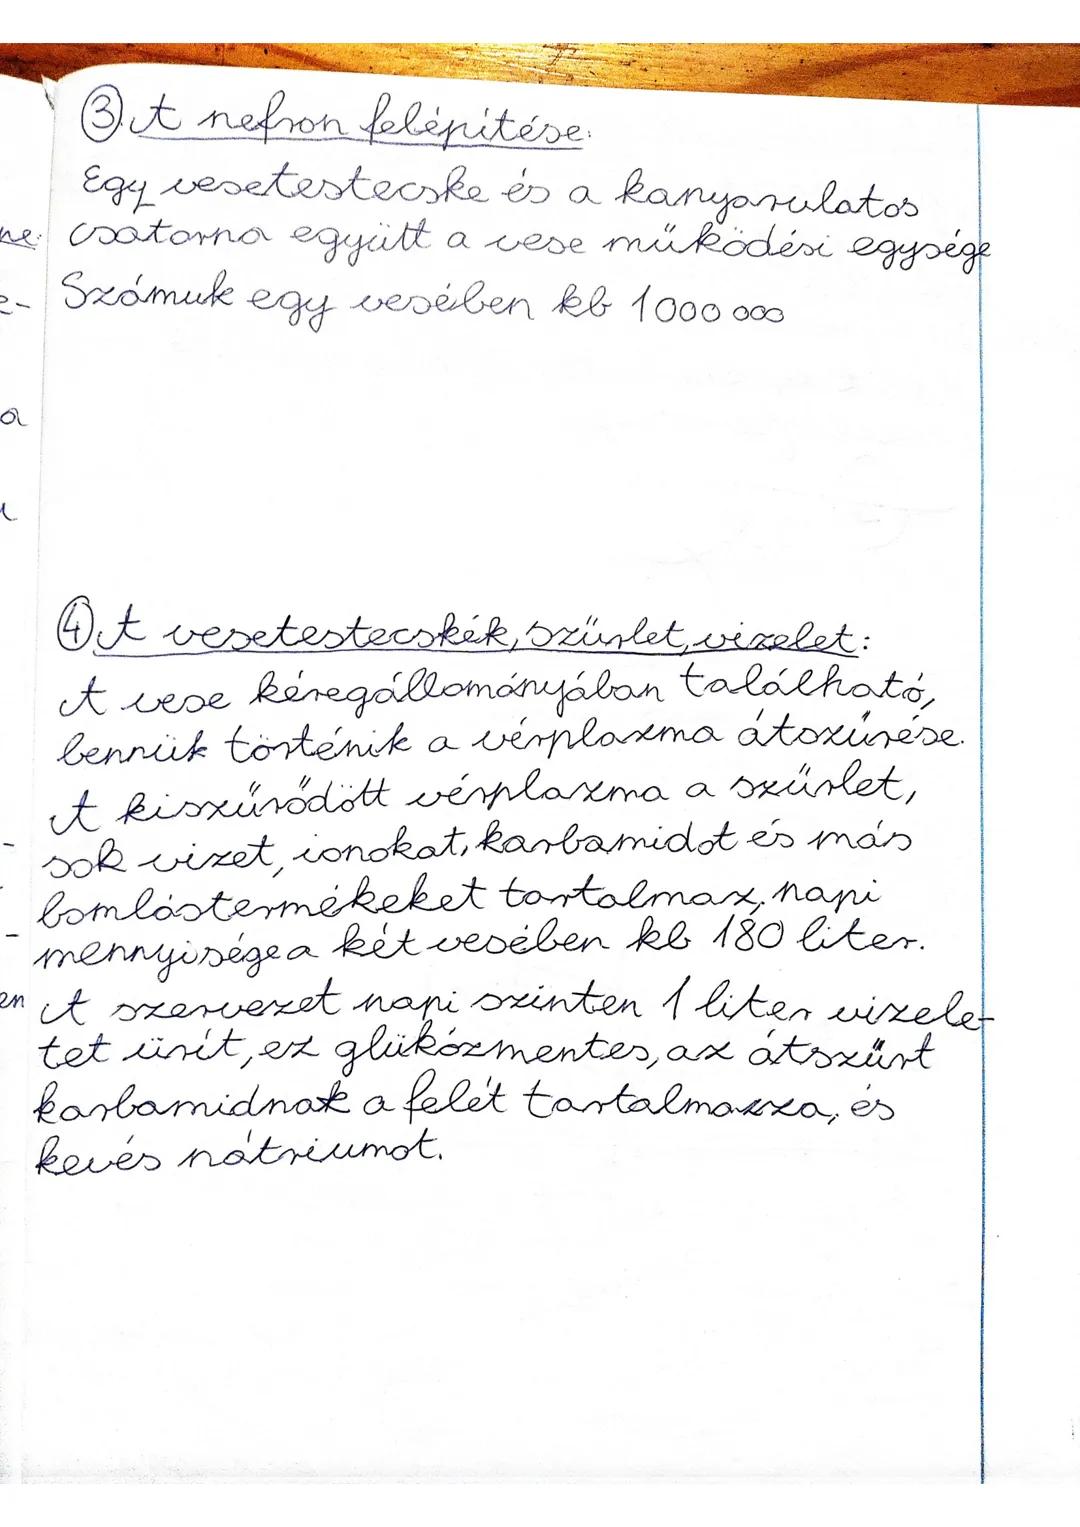 ③. A nefron felépítése:
Egy vesetestecske és a kanyarulatos
csatorna együtt a vese működési egysége
Számuk egy vesében kb 1000 000
④ A vesetestecskék, szűrlet, vizelet:
A vese kéregállományában található,
bennük történik a vérplazma átszűrése.
A kiszűrődött vérplazma a szűrlet,
sok vizet, ionokat, karbamidot és más
bomlástermékeket tartalmaz, napi
mennyisége a két vesében kb 180 liter.
A szervezet napi szinten 1 liter vizele-
tet ürít, ez glükózmentes, az átszűrt
karbamidnak a felét tartalmazza, és
kevés nátriumot.